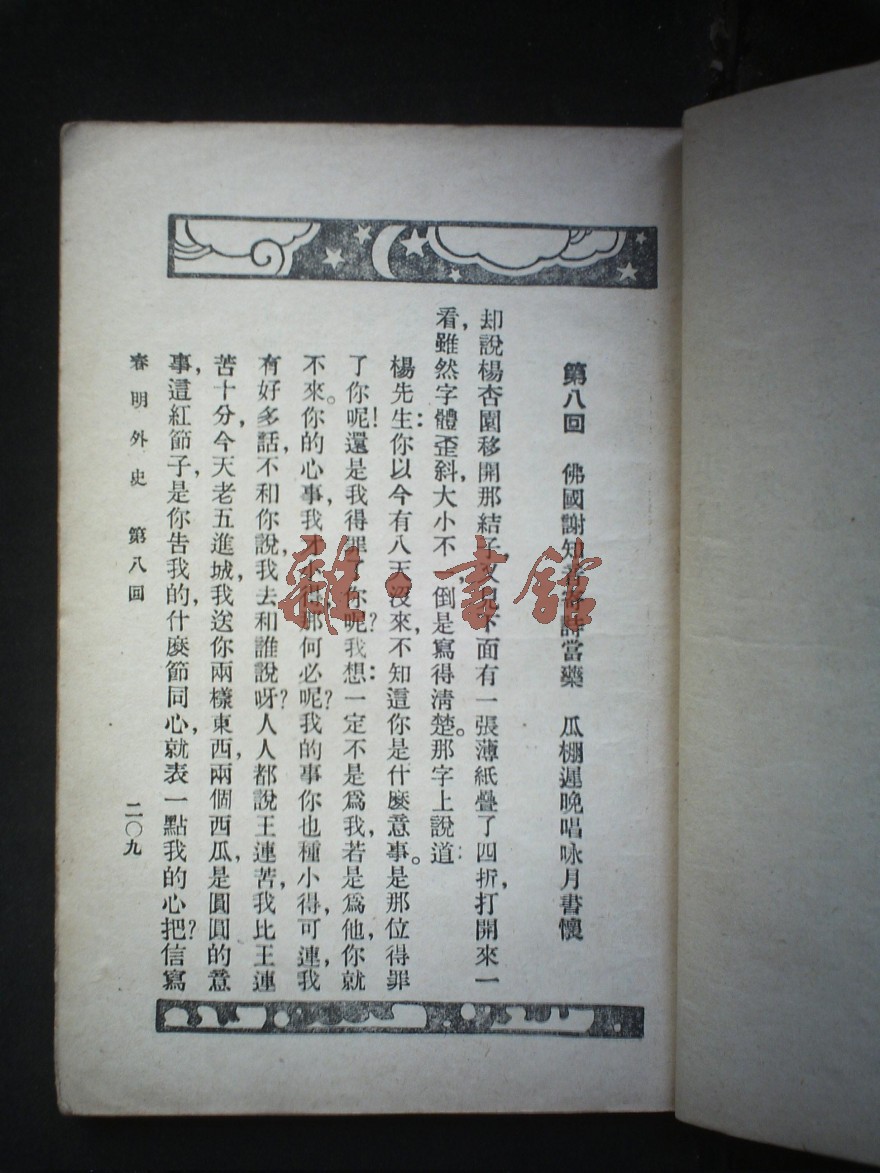 第八回　佛國謝知著寄詩當藥　瓜棚遲晚唱咏月書懷
却說楊杏園移開那結子，又見下面有一張薄紙疊了四折，打開來一
看，雖然字體歪斜，大小不，倒是寫得清楚。那字上說道：
楊先生：你以今有八天沒來，不知這你是什麼意事。是那位得罪
了你呢！還是我得罪了你呢？我想：一定不是爲我，若是爲他，你就
不來。你的心事，我才不得，那何必呢？我的事你也種小得，可連，我
有好多話，不和你說，我去和誰說呀？人人都說王連苦，我比王連
苦十分，今天老五進城，我送你兩樣東西，兩個西瓜，是圓圓的意
事，這紅節子，是你告我的，什麼節同心，就表一點我的心把？信寫
春明外史　第八回　二〇九
雜·書館